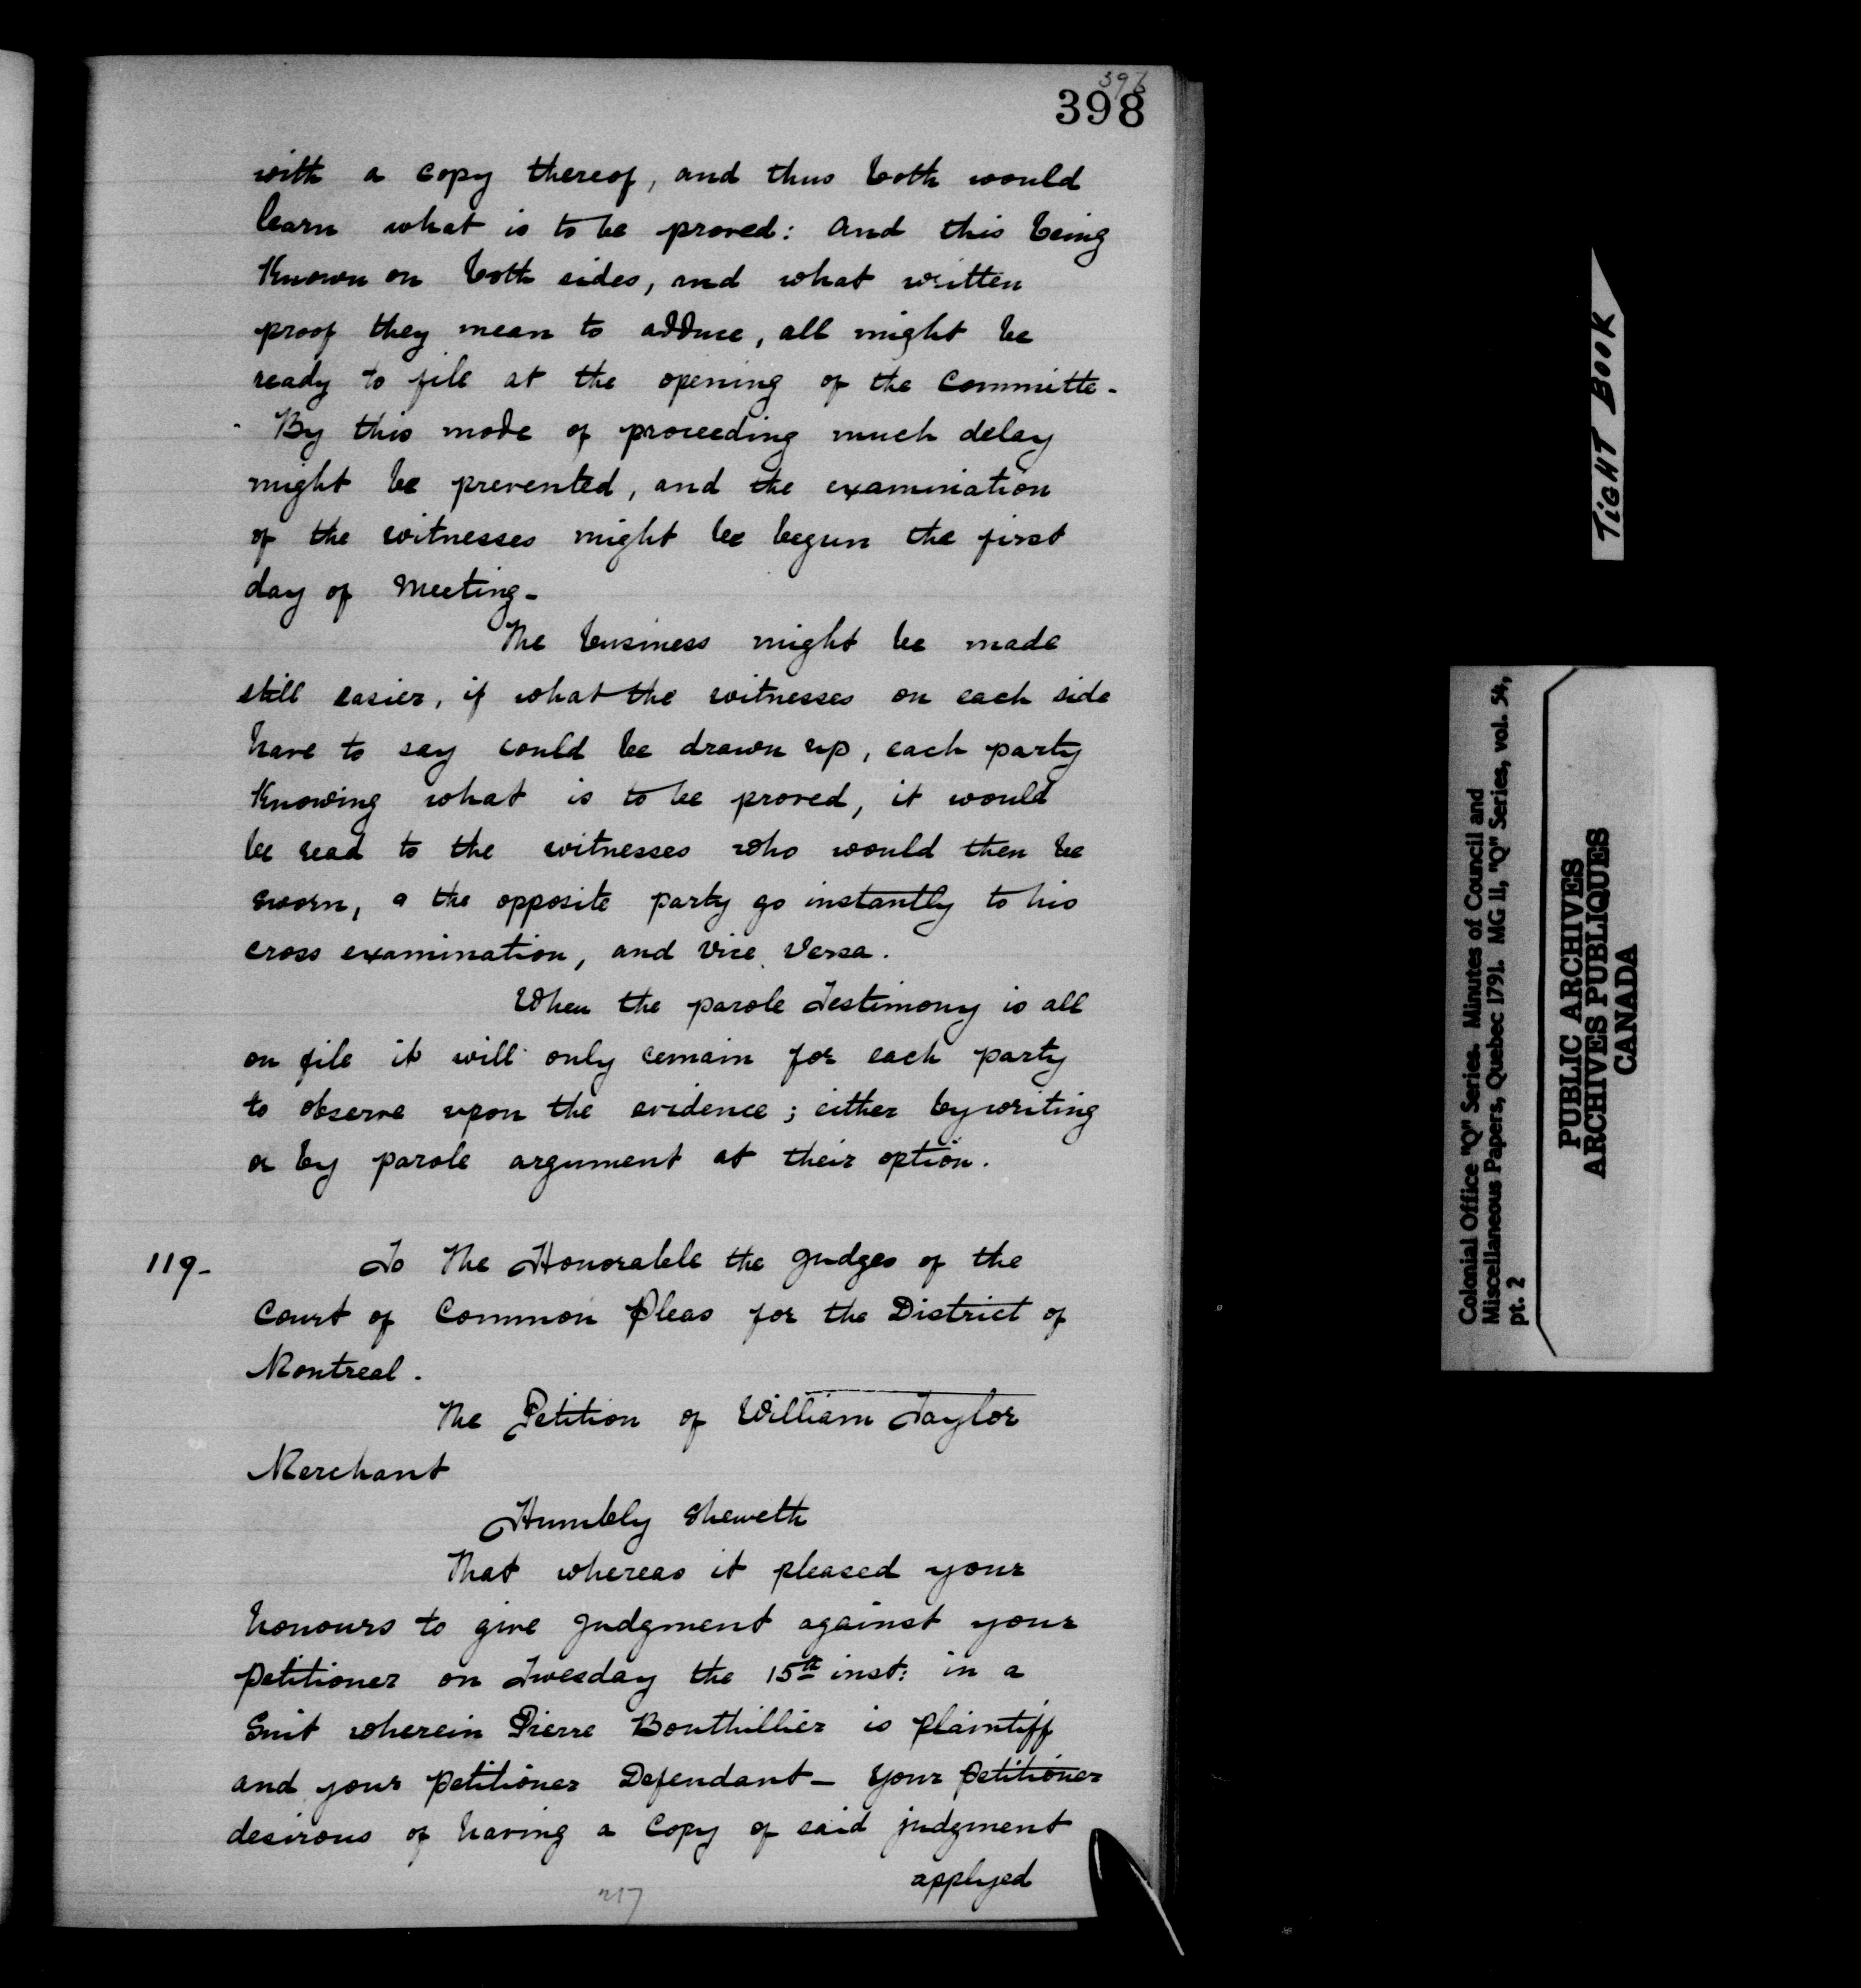 398
with a copy thereof, and thus both would
learn what is to be proved: and this being
Known on both sides, and what written
proof they mean to adduce, all might be
ready to file at the opening of the Committe-
By this mode of proceeding much delay
might be prevented, and the examination
of the witnesses might be begun the first
day of Meeting-
The business might be made
still easier, if what the witnesses on each side
have to say could be drawn up, each party
Knowing what is to be proved, it would
be read to the witnesses who would then be
sworn, & the opposite party go instantly to his
cross examination, and vice versa.
When the parole Testimony is all
on file it will only remain for each party
to observe upon the evidence; either by writing
or by parole argument at their option.
119-
To The Honorable the Judges of the
Court of Common Pleas for the District of
Montreal.
The Petition of William Taylor
Merchant
Humbly Sheweth
That whereas it pleased your
honours to give Judgment against your
petitioner on Tuesday the 15th inst: in a
Suit wherein Pierre Bouthillier is plaintiff
and your petitioner Defendant- your petitioner
desirous of having a Copy of said judgment
applyed
217
TIGHT BOOK
Colonial Office "Q" Series. Minutes of Council and
Miscellaneous Papers, Quebec 1791. MG 11, "Q" Series, vol. 54,
pt. 2
PUBLIC ARCHIVES
ARCHIVES PUBLIQUES
CANADA